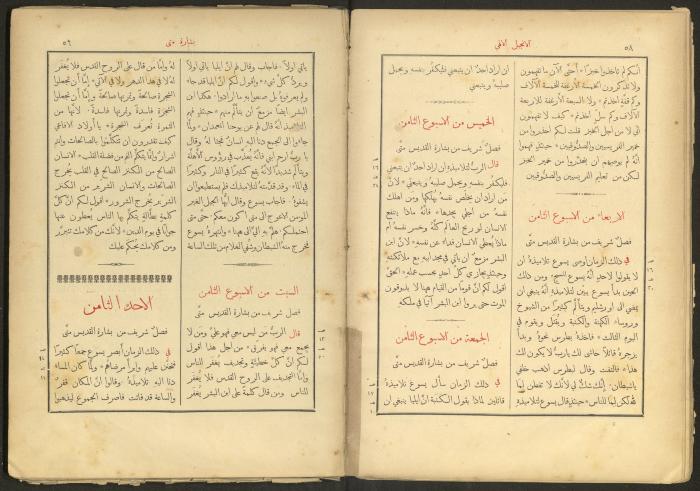 الانجيل الآتي
٥٨
انكم لم تاخذوا خبزًا * أحتى الآن ما تفهمون
ولا تذكرون الخمسة الأرغفة للخمسة الآلاف
وكم قفة اخذتم * ولا السبعة الأرغفة للاربعة
الآلاف وكم سلّ اخذتم * كيف لا تفهمون
اني لا من اجل الخبز قلت لكم احذروا من
خمير الفريسيين والصدوقيين * حينئذٍ فهموا
انهُ لم يوصهم ان يتحذروا من خمير الخبز
لكن من تعليم الفريسيين والصدوقيين
الاربعاء من الاسبوع الثامن
فصل شريف من بشارة القديس متى
في ذلك الزمان اوصى يسوع تلاميذهُ ان
لا يقولوا لاحدٍ أنهُ يسوع المسيح * ومن ذلك
الحين بدأ يسوع يبيّن لتلاميذه أنهُ ينبغي ان
يمضي الى اورشليم ويتألّم كثيرًا من الشيوخ
ورؤساء الكهنة والكتبة ويُقتل ويقوم في
اليوم الثالث * فاخذهُ بطرس نحوهُ وبدأ
يزجرهُ قائلًا حاشى لك يا رب لا يكون لك
هذا * فالتفت وقال لبطرس اذهب خلفي
يا شيطان * انك شكٌّ لي لانك لا تفطن لما
لله لكن لما للناس * حينئذٍ قال يسوع لتلاميذه
ان اراد احدٌ ان يتبعني فليكفر بنفسه ويحمل
صليبهُ ويتبعني
الخميس من الاسبوع الثامن
فصل شريف من بشارة القديس متى
قال الربُّ لتلاميذه ان اراد احدٌ ان يتبعني
فليكفر بنفسه ويحمل صليبهُ ويتبعني * لانَّ
مَن اراد ان يخلّص نفسهُ يهلكها ومن اهلك
نفسهُ من اجلي يجدها * فانّهُ ماذا ينتفع
الانسان لو ربح العالم كلّهُ وخسر نفسهُ ام
ماذا يُعطي الانسان فداءً عن نفسه * لانَّ ابن
البشر مزمعٌ ان ياتي في مجد ابيه مع ملائكته
وحينئذٍ يجازي كلَّ احدٍ بحسب عمله * الحقَّ
اقول لكم انَّ قومًا من القيام ههنا لا يذوقون
الموت حتى يروا ابن البشر آتيًا في ملكه
الجمعة من الاسبوع الثامن
فصل شريف من بشارة القديس متى
في ذلك الزمان سأل يسوع تلاميذهُ
قائلين لماذا يقول الكتبة انَّ ايليا ينبغي ان
بشارة متى
٥٦
ياتي اولًا * فاجاب وقال لهم انَّ ايليا ياتي اولًا
ويردّ كلَّ شيء * واقول لكم انَّ ايليا قد جاء
ولم يعرفوهُ بل صنعوا به ما ارادوا * هكذا ابن
البشر ايضًا مزمعٌ ان يتألّم منهم * حينئذٍ فهم
التلاميذ انهُ قال لهم عن يوحنا المعمدان * ولما
جاءوا الى الجمع دنا اليه انسانٌ مجثا لهُ وقال
يا ربُّ ارحم ابني فانّهُ يُعذَّب في رؤوس الأهلّة
ويتألم شديدًا لانهُ يقع كثيرًا في النار وكثيرًا
في الماء * وقد قدّمتهُ لتلاميذك فلم يستطيعوا ان
يشفوهُ * فاجاب يسوع وقال ايها الجيل الغير
المؤمن الاعوج الى متى اكون معكم * حتى متى
احتملكم * هلمّ به اليَّ الى ههنا * وانتهرهُ يسوع
فخرج منهُ الشيطان وشُفي الغلام من تلك الساعة
السبت من الاسبوع الثامن
فصل شريف من بشارة القديس متى
قال الربُّ مَن ليس معي فهو عليَّ ومَن لا
يجمع معي فهو يفرّق * من اجل هذا اقول
لكم انَّ كلَّ خطيئةٍ وتجديفٍ يُغفَر للناس
وامّا التجديف على الروح القدس فلا يُغفَر
للناس * ومن قال كلمةً على ابن البشر يُغفَر
لهُ وامّا مَن قال على الروح القدس فلا يُغفَر
لهُ لا في هذا الدهر ولا في الآتي * إمّا ان تجعلوا
الشجرة صالحةً وثمرتها صالحةً وإمّا ان تجعلوا
الشجرة فاسدةً وثمرتها فاسدةً * لانها من
الثمرة تُعرف الشجرة * يا اولاد الافاعي
كيف تقدرون ان تتكلّموا بالصالحات وانتم
اشرارٌ وانما يتكلّم الفم من فضلة القلب * الانسان
الصالح من الكنز الصالح في القلب يُخرج
الصالحات والانسان الشرّير من الكنز
الشرّير يُخرج الشرور * اقول لكم انَّ كلَّ
كلمةٍ بطّالةٍ يتكلّم بها الناس يعطون عنها
جوابًا في يوم الدين * لانك من كلامك تتبرّر
ومن كلامك يُحكَم عليك
الاحد الثامن
فصل شريف من بشارة القديس متى
في ذلك الزمان أبصر يسوع جمعًا كثيرًا
فتحنّن عليهم وابرأ مرضاهم * ولما كان المساء
دنا اليه تلاميذهُ وقالوا انَّ المكان قفرٌ
والساعة قد فاتت فاصرف الجموع ليذهبوا